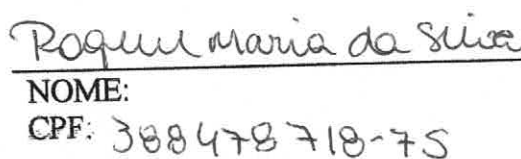 Raquel Maria da Silva
NOME:
CPF: 388478718-75